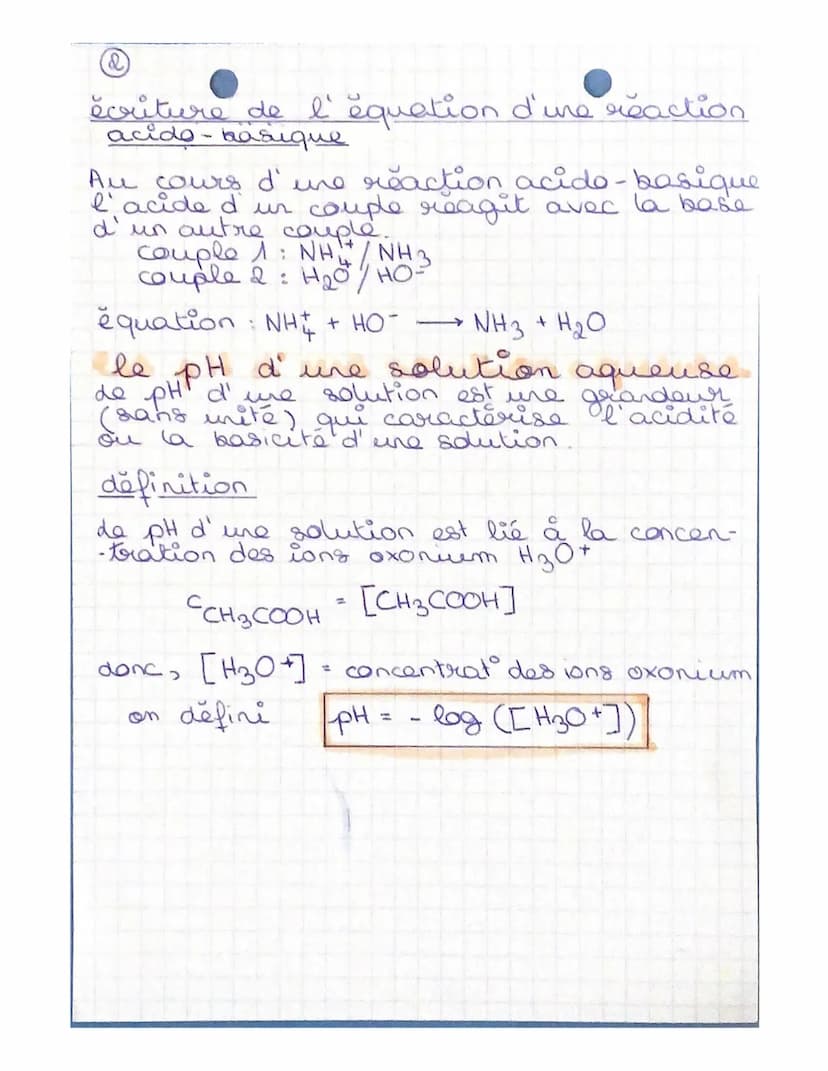 ②
écriture de l'équation d'une réaction
acido-basique
Au cours d'une réaction acido-basique
l'acide d'un couple réagit avec la base
d'un autre couple.
couple 1 : NH₄⁺ / NH₃
couple 2 : H₂O / HO⁻
équation : NH₄⁺ + HO⁻ → NH₃ + H₂O
le pH d'une solution aqueuse.
Le pH d'une solution est une grandeur
(sans unité) qui caractérise l'acidité
ou la basicité d'une solution.
définition
Le pH d'une solution est lié à la concen-
-tration des ions oxonium H₃O⁺
C_CH₃COOH = [CH₃COOH]
donc, [H₃O⁺] = concentrat° des ions oxonium
on défini pH = - log ([H₃O⁺])